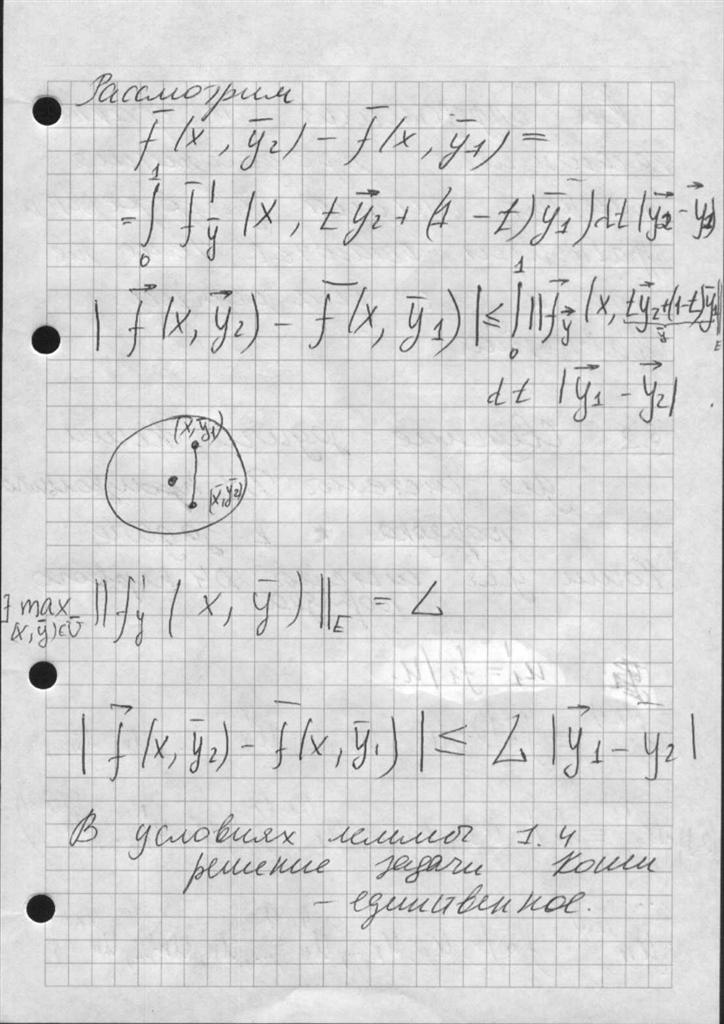 Рассмотрим
f̄(x, ȳ₂) − f̄(x, ȳ₁) =
= ∫₀¹ f̄'_ȳ (x, t y⃗₂ + (1 − t) ȳ₁) dt (y⃗₂ − y⃗₁)
| f⃗(x, y⃗₂) − f̄(x, ȳ₁) | ≤ ∫₀¹ || f⃗_y⃗ (x, t y⃗₂ + (1−t) ȳ₁ ||_E
dt | y⃗₁ − y⃗₂ |
(x, ȳ₁)
(x, ȳ₂)
∃ max_{(x, ȳ) ∈ Ū} || f'_y (x, ȳ) ||_E = L
| f⃗(x, ȳ₂) − f̄(x, ȳ₁) | ≤ L | y⃗₁ − y₂ |
В условиях леммы 1.4
решение задачи Коши
– единственное.